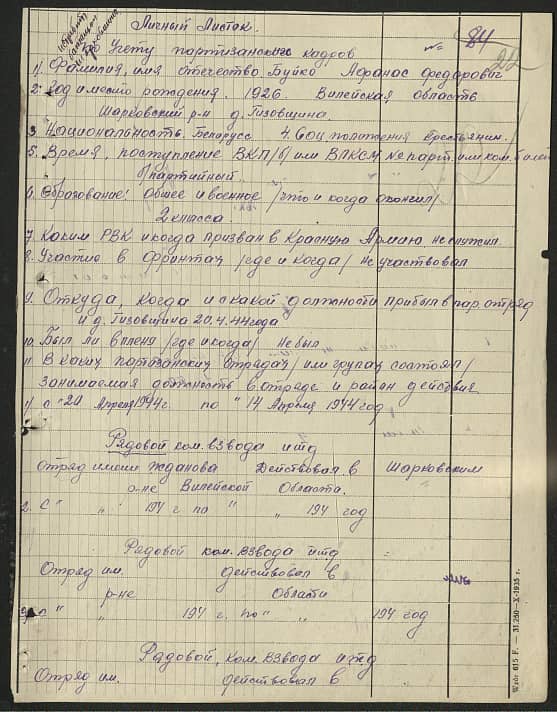 Личный Листок.
по Учету партизанских кадров № 84
22
1) Фамилия, имя отечество Буйко Афанас федарович
2. Год и место рождения. 1926. Вилейская область
Шарковский р-н д. Гизовщина.
3 Национальность. Беларусс 4. Соц. положения Крестьянин.
5. Время, поступление ВКП/б/ или ВЛКСМ, № парт. или ком. билет
Б/партийный
6. Образование: общее и военное /что и когда окончил/
2 класса
7. Каким РВК и когда призван в Красную Армию не служил
8. Участие в фронтах /где и когда/ не участвовал
9. Откуда, когда и с какой должности прибыл в пар. отряд
из д. Гизовщина 20.4.44 года
10. Был ли в плену /где и когда/ не был
11. В каких партизанских отрядах/ или групах состоял/
занимаемая должность в отряде и район действия
1/ с "20 Апреля 1944 г. по "14 Апреля 1944 год
Рядовой ком. взвода итд
Отряд имени Жданова Действовал в Шарковским
р-не Вилейской Области.
2. С " " 194 г по " " 194 год
Рядовой ком. взвода итд
Отряд им. действовал в
р-не Области
3 с " " 194 г. по " " 194 год
Рядовой, ком. взвода итд
Отряд им. действовал в
Wzór 615 F. — 31.250—X-1935 r.